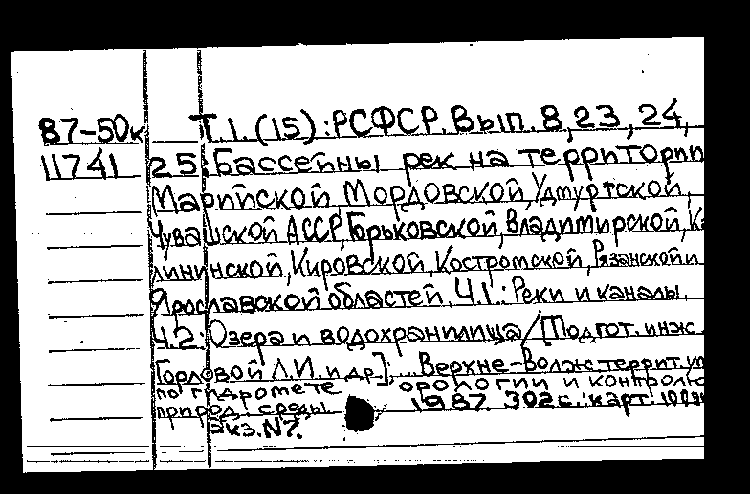 87-50к Т.1.(15):РСФСР. Вып. 8, 23, 24,
11741 25: Бассейны рек на территории
Марийской Мордовской, Удмуртской,
Чувашской АССР, Горьковской, Владимирской, Ка
лининской, Кировской, Костромской, Рязанской и
Ярославской областей, Ч.1.: Реки и каналы,
Ч.2: Озера и водохранилища / [Подгот. инж.
Горловой Л.И. и др.], ... Верхне-Волж. террит. уп
по гидрометеорологии и контролю
природ. среды 1987. 302 с.: карт.
Экз. N7.